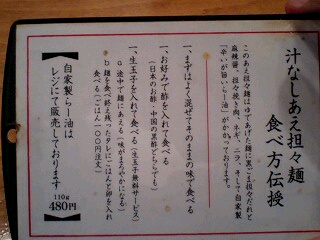 汁なしあえ担々麺
食べ方伝授
このあえ担々麺はゆであげた麺に黒ごま担々だれと
麻辣醤、担々挽き肉、ネギ、ニラ、そして自家製
「辛いが旨いらー油」がかかっております。
一、まずはよく混ぜてそのままの味で食べる
一、お好みで酢を入れて食べる
（日本のお酢・中国の黒酢どちらでも）
一、生玉子を入れて食べる（生玉子無料サービス）
a 途中で麺にあえる（味がまろやかになる）
b 麺を食べ終え残ったタレにごはんと卵を入れ
食べる（ごはん一〇〇円注文）
【自家製らー油は
レジにて販売しております】
110g
480円